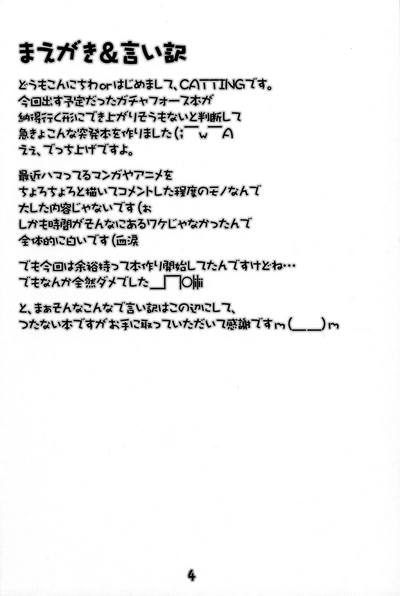 まえがき&言い訳
どうもこんにちわorはじめまして、CATTINGです。
今回出す予定だったガチャフォース本が
納得行く形にでき上がりそうもないと判断して
急きょこんな突発本を作りました(;￣w￣A
ええ、でっち上げですよ。
最近ハマってるマンガやアニメを
ちょろちょろと描いてコメントした程度のモノなんで
大した内容じゃないです(ぉ
しかも時間がそんなにあるワケじゃなかったんで
全体的に白いです(血涙
でも今回は余裕持って本作り開始してたんですけどね…
でもなんか全然ダメでした＿|￣|○|||
と、まぁそんなこんなで言い訳はこの辺にして、
つたない本ですがお手に取っていただいて感謝ですm(＿＿)m
4